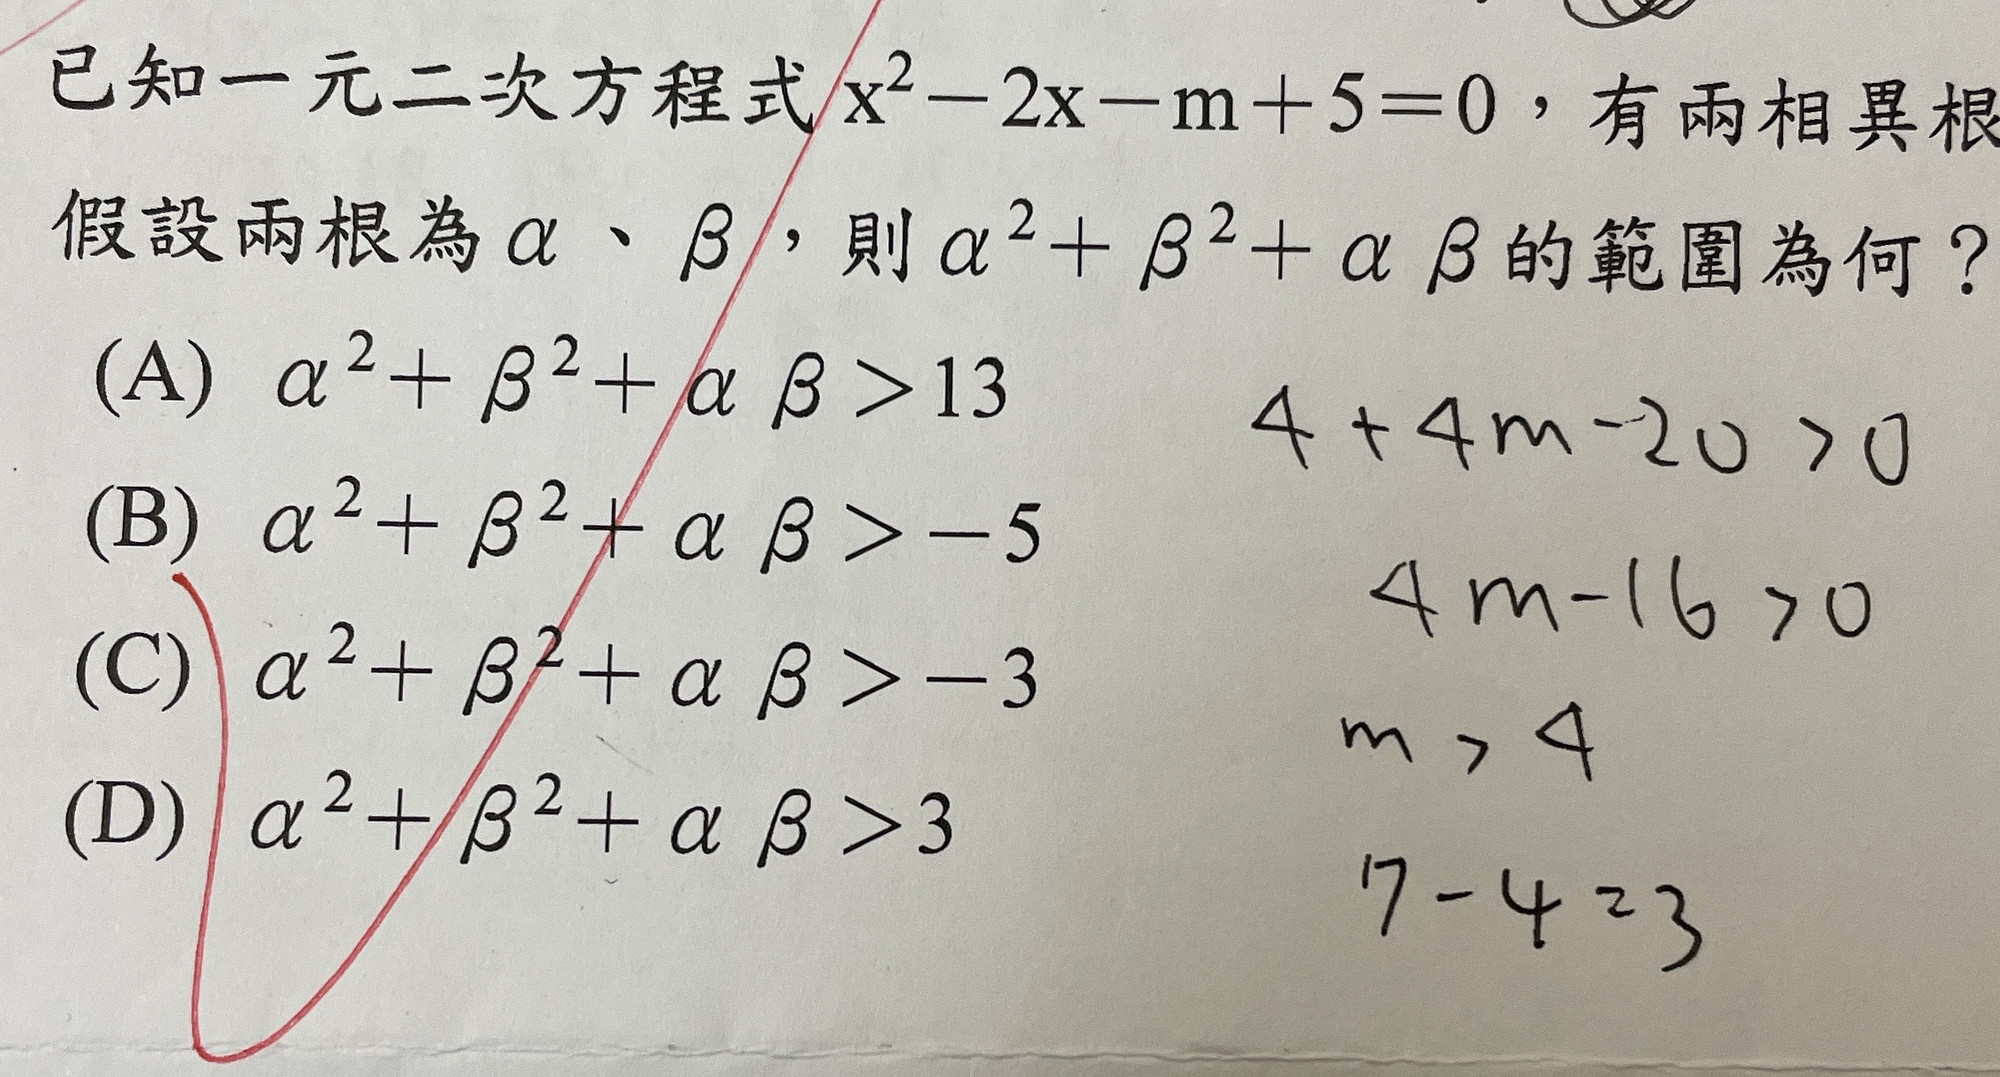 已知一元二次方程式 x²－2x－m＋5＝0，有兩相異根
假設兩根為α、β，則α²＋β²＋αβ的範圍為何？
(A) α²＋β²＋αβ＞13
(B) α²＋β²＋αβ＞－5
(C) α²＋β²＋αβ＞－3
(D) α²＋β²＋αβ＞3
4+4m-20>0
4m-16>0
m>4
7-4=3